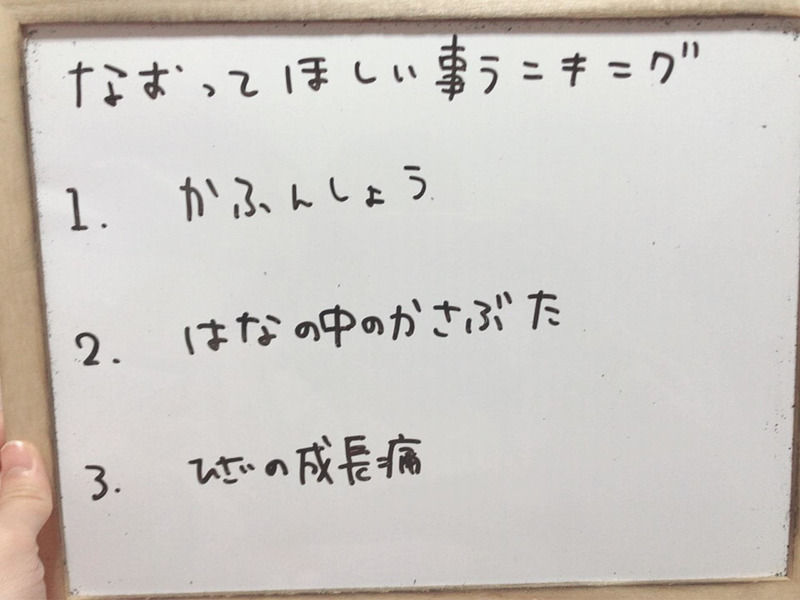 なおってほしい事ランキング
1. かふんしょう
2. はなの中のかさぶた
3. ひざの成長痛